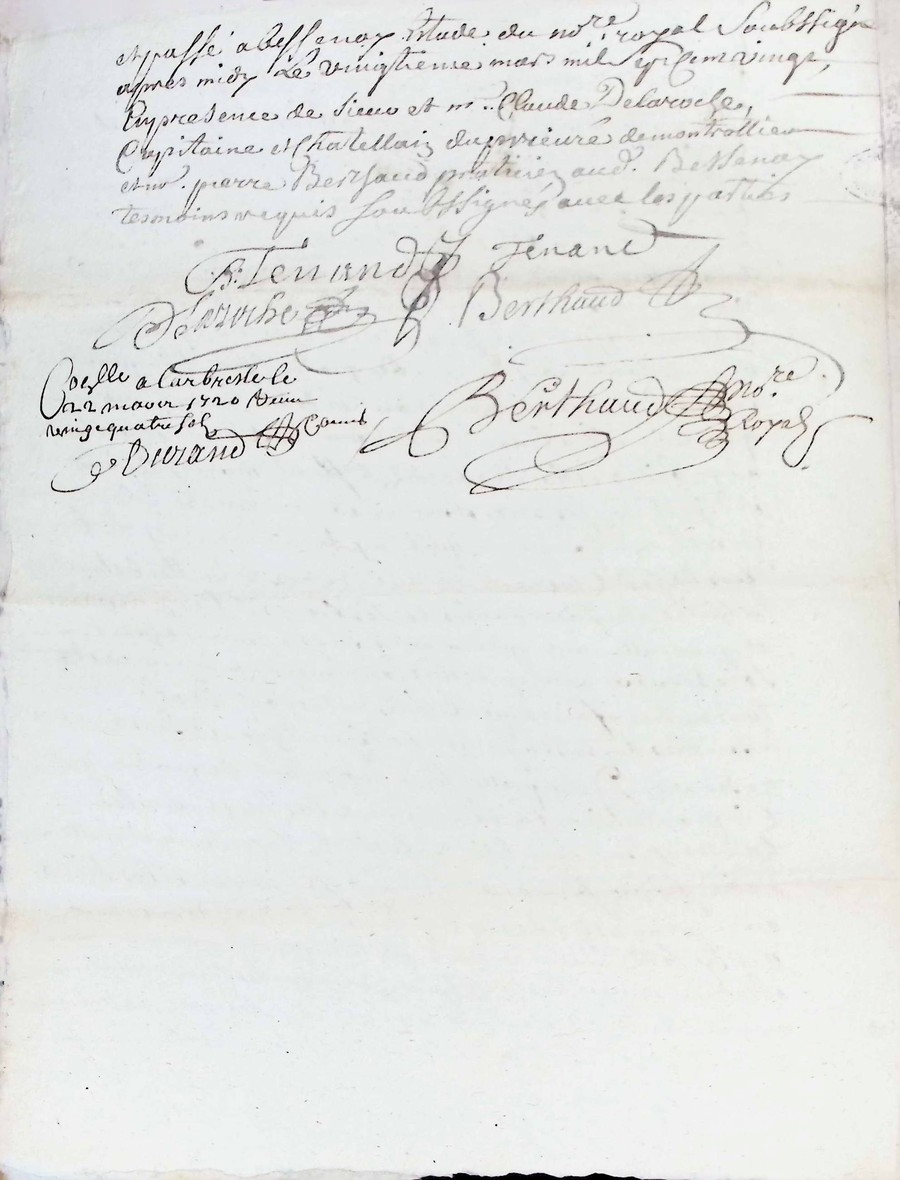 et passé a bessenay Etude du nore. royal Soubssigné
apres midy Le vingtieme mars mil Sept Cent vingt,
En presence de Sieur et me. Claude Delaroche,
Capitaine et Chatellain du prieuré de montrottier
et me. pierre Berthaud praticien aud. Bessenay
tesmoins requis Soubssignés avec les parties
Tenand
Delaroche Berthaud
Coelle a Larbresle le
22 mars 1720 Reçu
vingt quatre sols
Durand Comis
Berthaud nore.
Royal